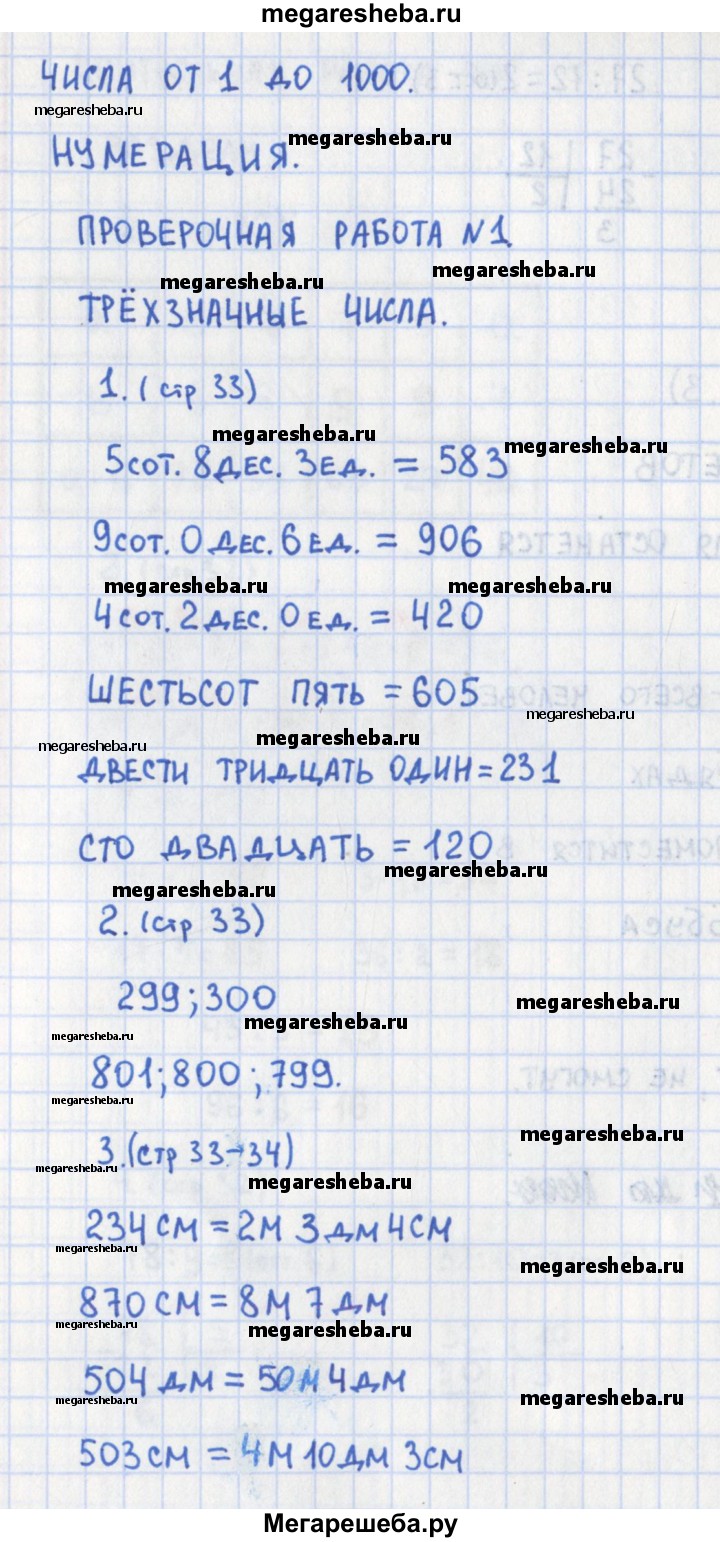 megaresheba.ru
ЧИСЛА ОТ 1 ДО 1000.
megaresheba.ru
megaresheba.ru
НУМЕРАЦИЯ.
ПРОВЕРОЧНАЯ РАБОТА №1
megaresheba.ru
megaresheba.ru
ТРЁХЗНАЧНЫЕ ЧИСЛА.
1. (стр 33)
megaresheba.ru
megaresheba.ru
5 СОТ. 8 ДЕС. 3 ЕД. = 583
9 СОТ. 0 ДЕС. 6 ЕД. = 906
megaresheba.ru megaresheba.ru
4 СОТ. 2 ДЕС. 0 ЕД. = 420
ШЕСТЬСОТ ПЯТЬ = 605
megaresheba.ru
megaresheba.ru megaresheba.ru
ДВЕСТИ ТРИДЦАТЬ ОДИН = 231
СТО ДВАДЦАТЬ = 120
megaresheba.ru
megaresheba.ru
2. (стр 33)
299; 300
megaresheba.ru
megaresheba.ru
megaresheba.ru
801; 800; 799.
megaresheba.ru
megaresheba.ru
3. (стр 33→34)
megaresheba.ru
megaresheba.ru
234 СМ = 2 М 3 ДМ 4 СМ
megaresheba.ru
megaresheba.ru
870 СМ = 8 М 7 ДМ
megaresheba.ru
megaresheba.ru
504 ДМ = 50 М 4 ДМ
megaresheba.ru
megaresheba.ru
503 СМ = 4 М 10 ДМ 3 СМ
Мегарешеба.ру